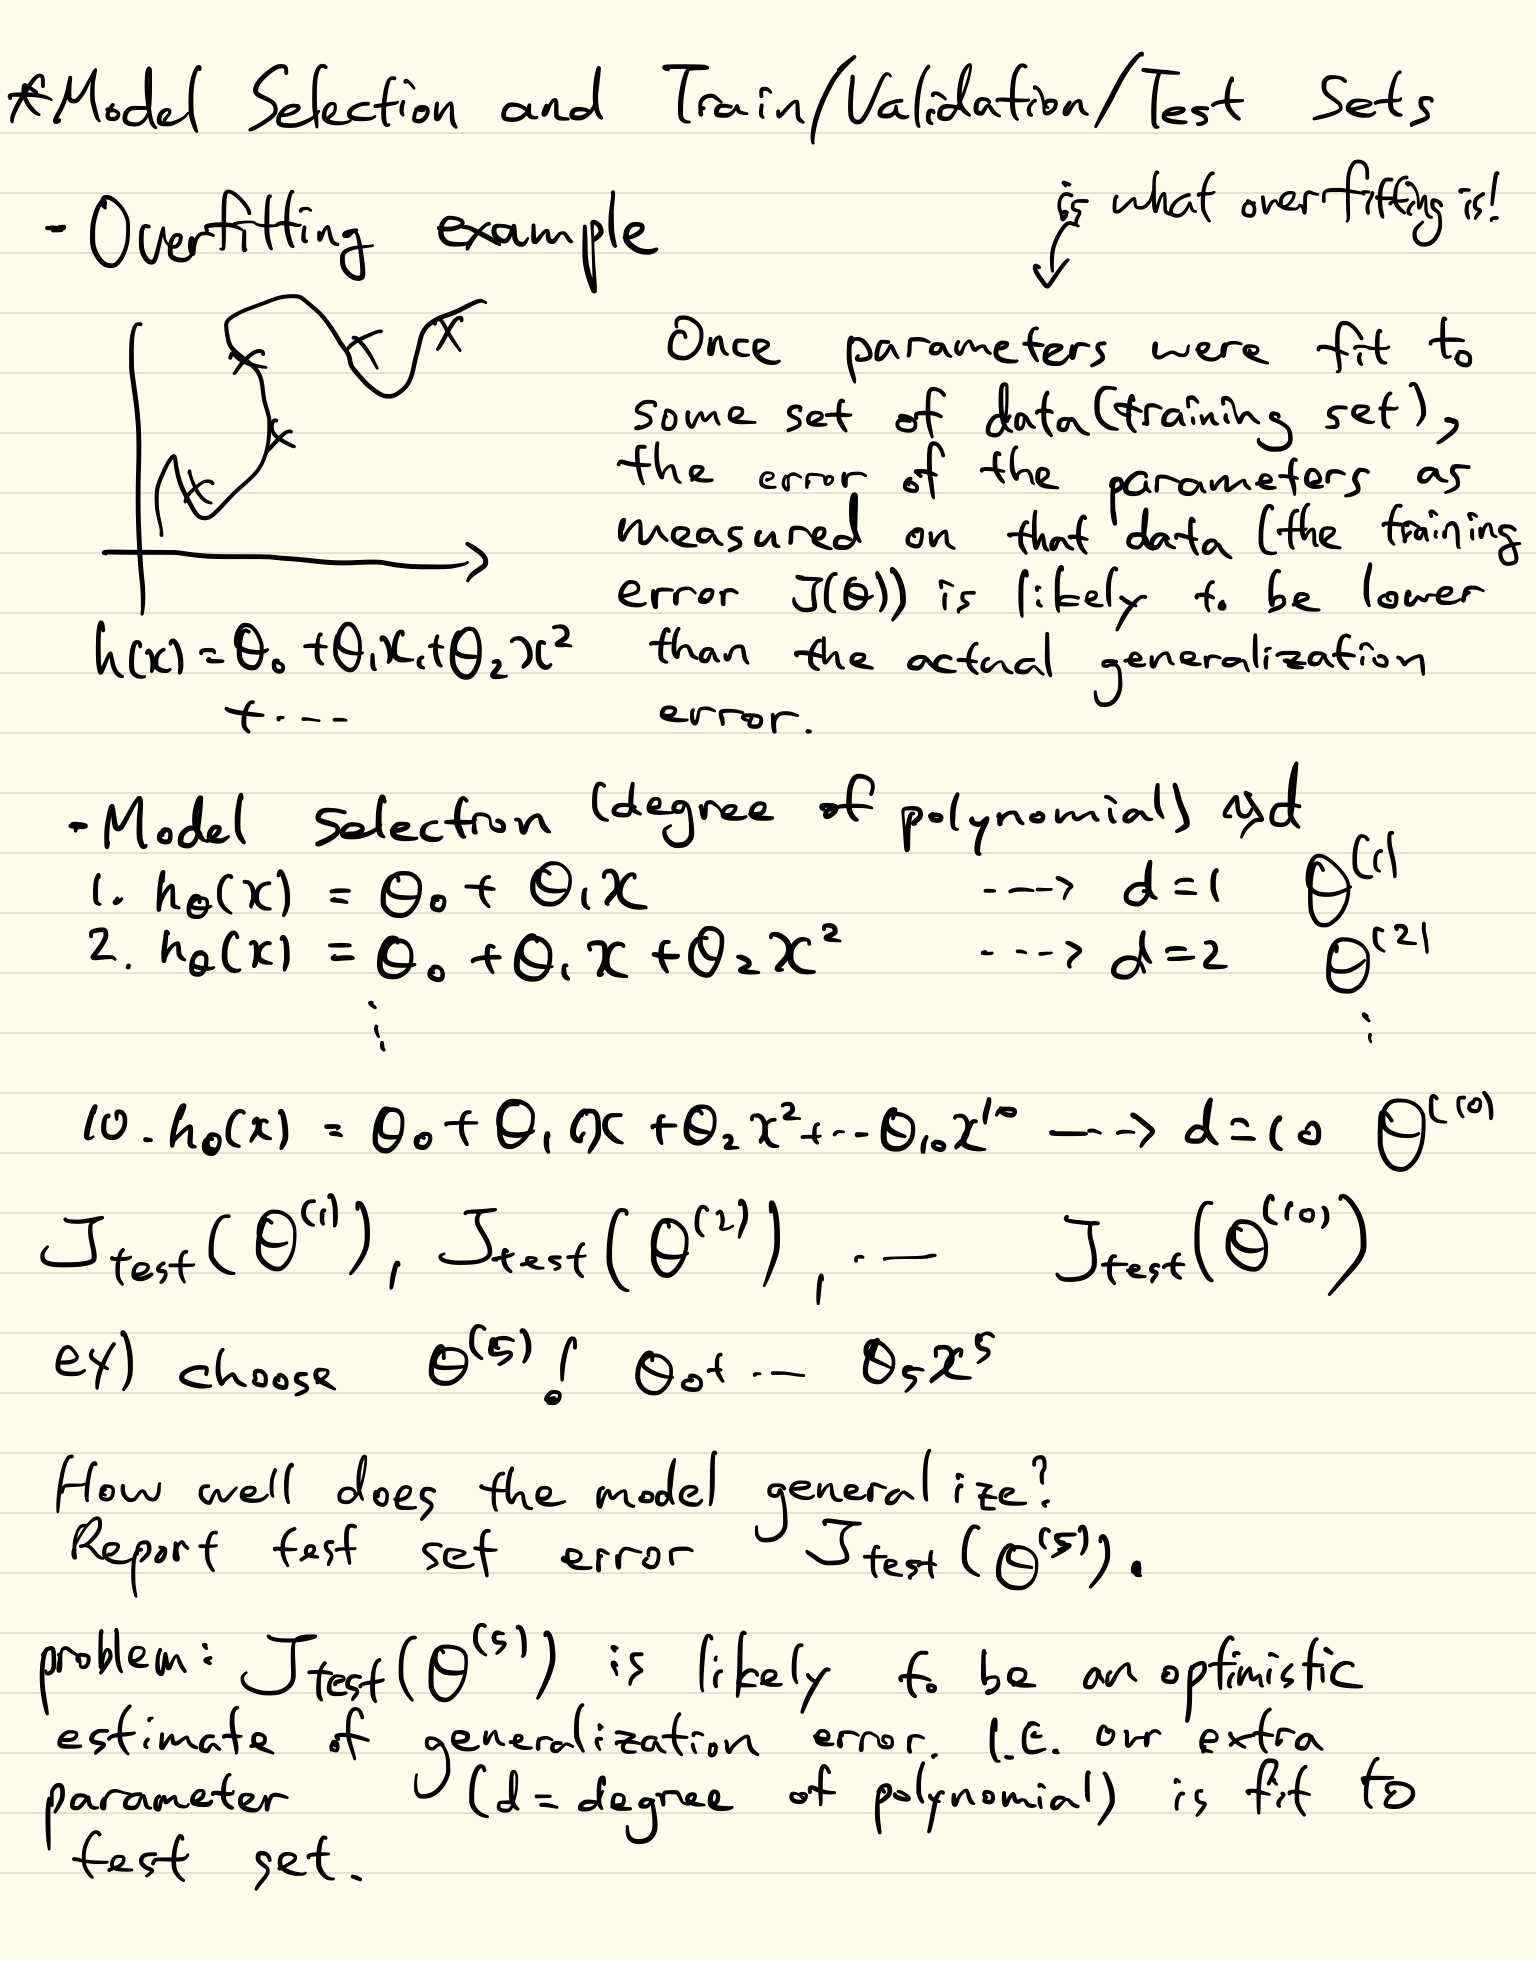 *Model Selection and Train/Validation/Test Sets
is what overfitting is!
- Overfitting example
Once parameters were fit to
some set of data (training set),
the error of the parameters as
measured on that data (the training
error J(θ)) is likely to be lower
than the actual generalization
error.
h(x) = θ₀ + θ₁x₁ + θ₂x²
+ ---
- Model selection (degree of polynomial) → d
1. hθ(x) = θ₀ + θ₁x ---> d = 1 θ⁽¹⁾
2. hθ(x) = θ₀ + θ₁x + θ₂x² ---> d = 2 θ⁽²⁾
⋮ ⋮
10. hθ(x) = θ₀ + θ₁x + θ₂x² + --- θ₁₀x¹⁰ ---> d = 10 θ⁽¹⁰⁾
J_test(θ⁽¹⁾), J_test(θ⁽²⁾), --- J_test(θ⁽¹⁰⁾)
ex) choose θ⁽⁵⁾! θ₀ + --- θ₅x⁵
How well does the model generalize?
Report test set error J_test(θ⁽⁵⁾).
problem: J_test(θ⁽⁵⁾) is likely to be an optimistic
estimate of generalization error. I.E. our extra
parameter (d = degree of polynomial) is fit to
test set.